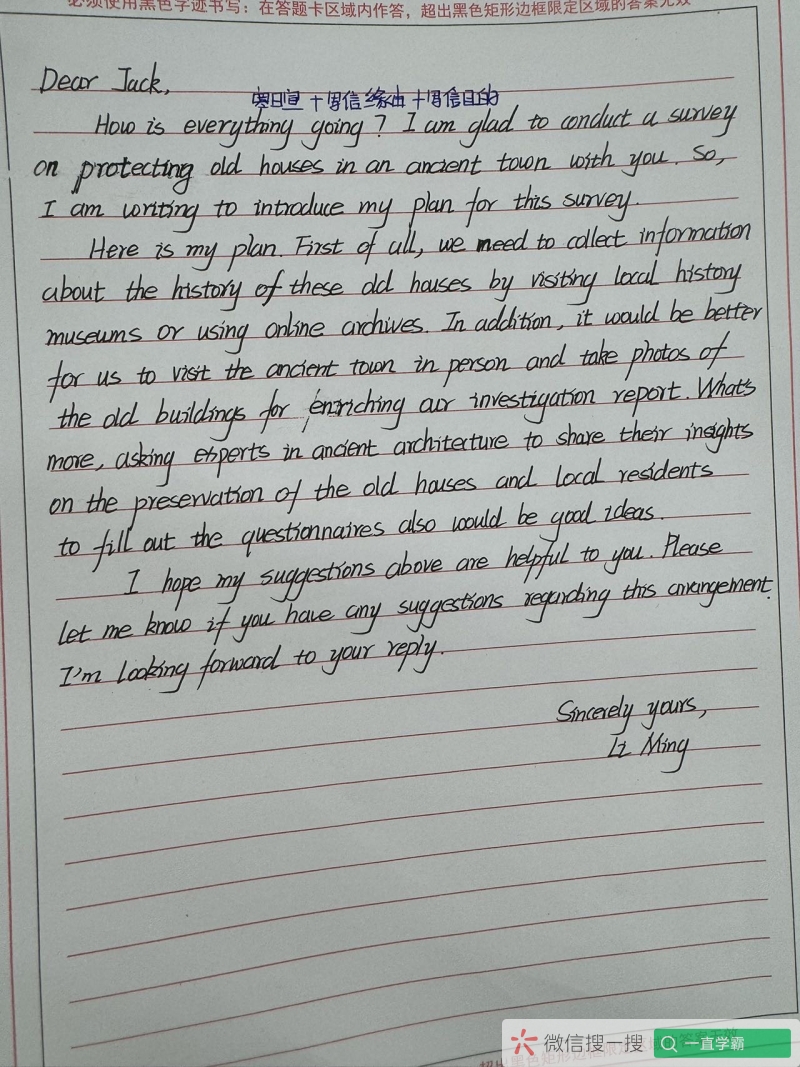 必须使用黑色字迹书写：在答题卡区域内作答，超出黑色矩形边框限定区域的答案无效
Dear Jack,
寒暄 + 写信缘由 + 写信目的
How is everything going? I am glad to conduct a survey
on protecting old houses in an ancient town with you. So,
I am writing to introduce my plan for this survey.
Here is my plan. First of all, we need to collect information
about the history of these old houses by visiting local history
museums or using online archives. In addition, it would be better
for us to visit the ancient town in person and take photos of
the old buildings for enriching our investigation report. What's
more, asking experts in ancient architecture to share their insights
on the preservation of the old houses and local residents
to fill out the questionnaires also would be good ideas.
I hope my suggestions above are helpful to you. Please
let me know if you have any suggestions regarding this arrangement.
I'm looking forward to your reply.
Sincerely yours,
Li Ming
微信搜一搜
一直学霸